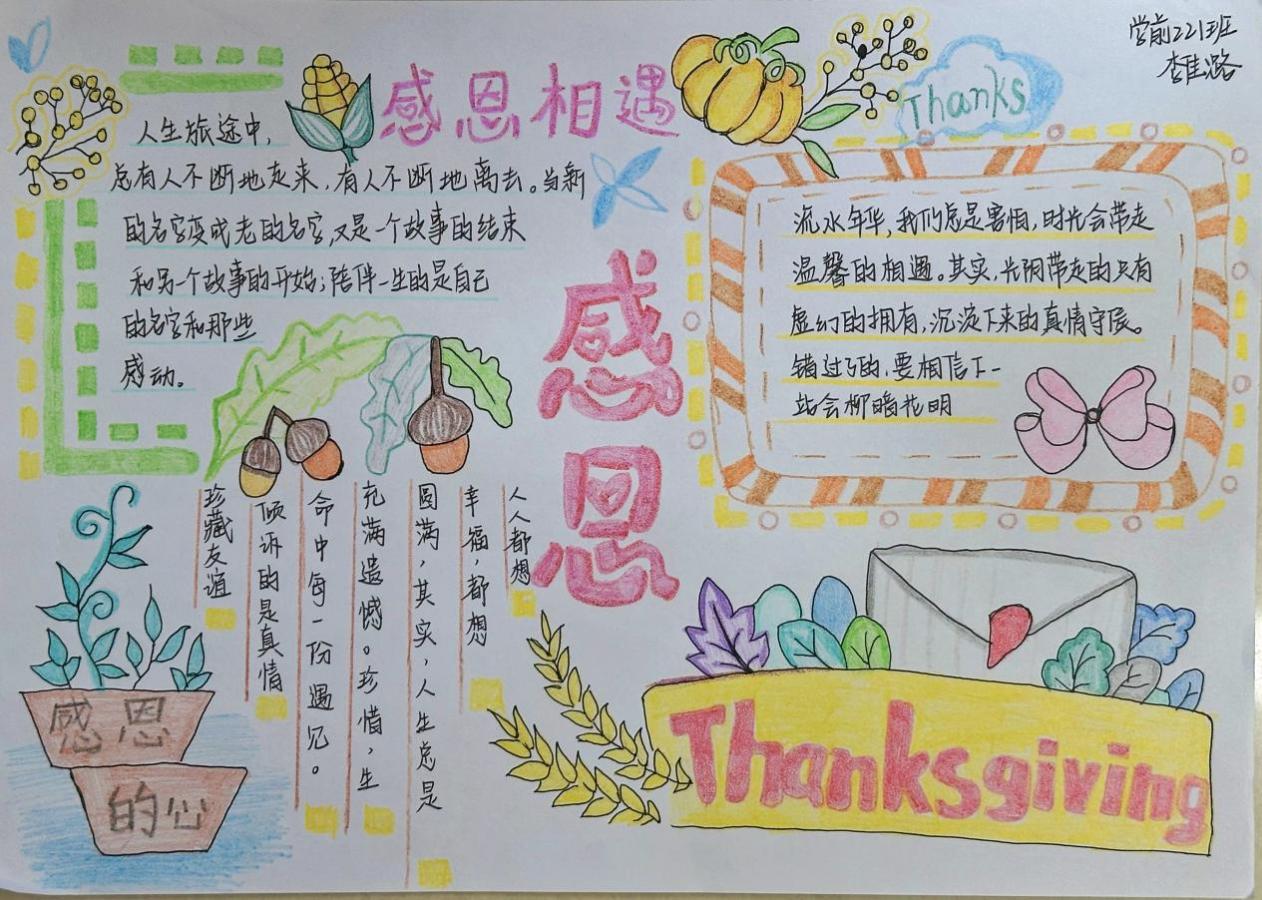 感恩相遇
Thanks
学前221班
人生旅途中,
总有人不断地走来,有人不断地离去。当新
的名字变成老的名字,又是一个故事的结束
和另一个故事的开始;陪伴一生的是自己
的名字和那些
感动。
流水年华,我们总是害怕,时光会带走
温馨的相遇。其实,光阴带走的只有
虚幻的拥有,沉淀下来的真情守候。
错过了的,要相信下一
站会柳暗花明
感恩
人人都想
幸福,都想
圆满,其实,人生总是
充满遗憾。珍惜,生
命中每一份遇见。
倾诉的是真情
珍藏友谊
感恩
的心
Thanksgiving